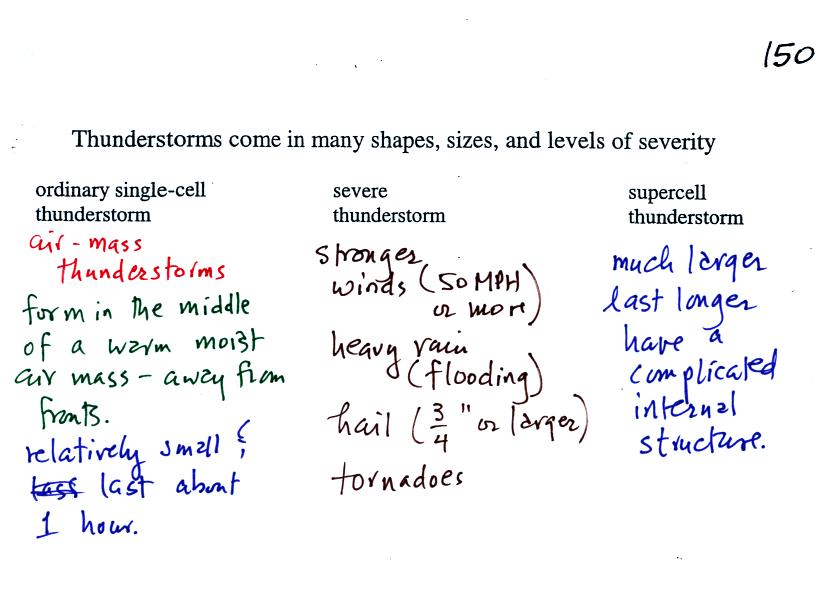 150
Thunderstorms come in many shapes, sizes, and levels of severity
ordinary single-cell
thunderstorm
air-mass
thunderstorms
form in the middle
of a warm moist
air mass - away from
fronts.
relatively small &
last about
1 hour.
severe
thunderstorm
stronger
winds (50 MPH
or more)
heavy rain
(flooding)
hail (3/4" or larger)
tornadoes
supercell
thunderstorm
much larger
last longer
have a
complicated
internal
structure.